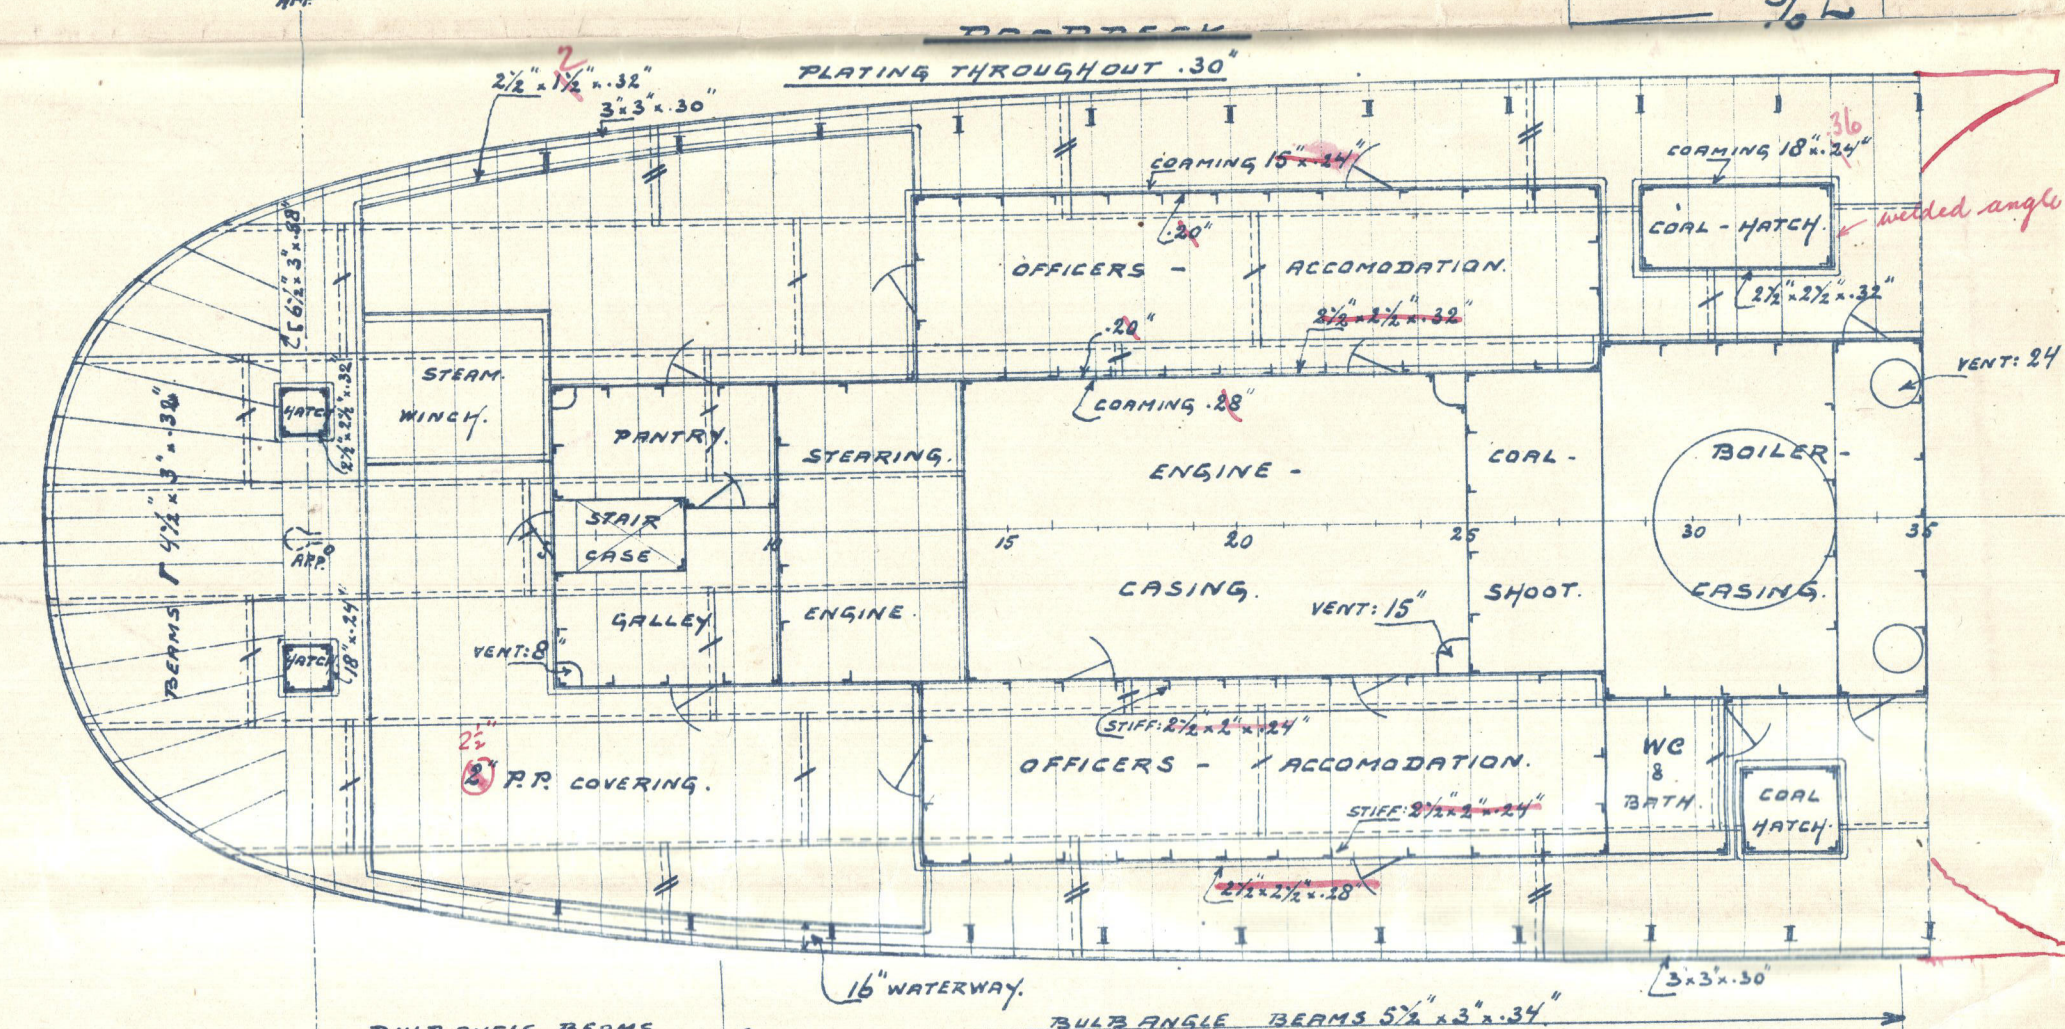 POOPDECK
PLATING THROUGHOUT .30"
2
2½" x 1½" x .32"
3" x 3" x .30"
COAMING 15" x .24"
36
COAMING 18" x .24"
welded angle
COAL - HATCH.
2½" x 2½" x .32"
.20"
OFFICERS - ACCOMODATION.
.20"
2½" x 2½" x .32
[ 6½" x 3" x .38"
STEAM
WINCH.
HATCH
2½" x 2½" x .32"
VENT: 24
COAMING .28"
PANTRY.
STEARING.
ENGINE -
COAL -
BOILER -
BEAMS 4½" x 3" x .32"
STAIR
CASE
A.P.P.
5
10
15
20
25
30
35
CASING.
SHOOT.
CASING.
GALLEY
ENGINE.
VENT: 15"
VENT: 8"
HATCH
18" x .24"
STIFF: 2½" x 2" x .24"
2½"
2" P.P. COVERING.
OFFICERS - ACCOMODATION.
WC
&
BATH.
COAL
HATCH.
STIFF: 2½" x 2" x .24"
2½" x 2½" x .28"
16" WATERWAY.
3" x 3" x .30"
BULB ANGLE BEAMS
BULB ANGLE BEAMS 5½" x 3" x .34"